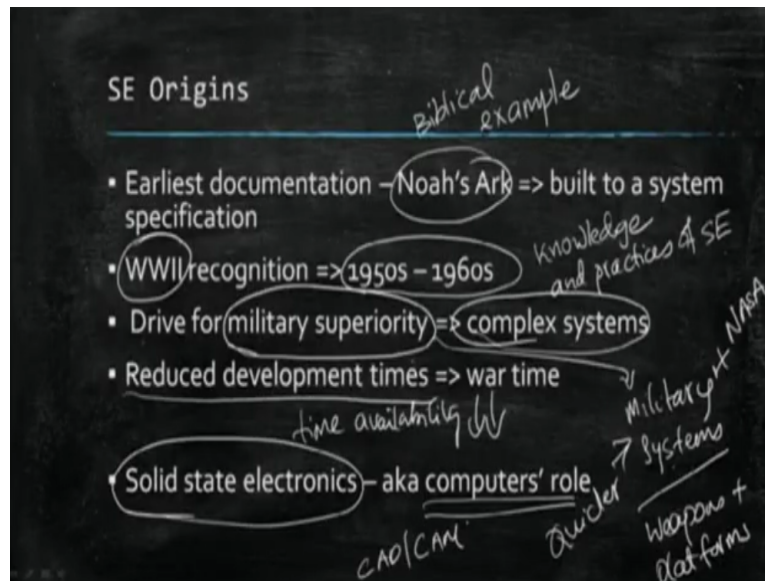 SE Origins
Biblical
example
▪ Earliest documentation – Noah's Ark => built to a system
specification
▪ WWII recognition => 1950s – 1960s
knowledge
and practices of SE
▪ Drive for military superiority => complex systems
▪ Reduced development times => war time
time availability ↓↓
Military + NASA
Systems
▪ Solid state electronics – aka computers' role
CAD/CAM
Quicker
Weapons +
platforms